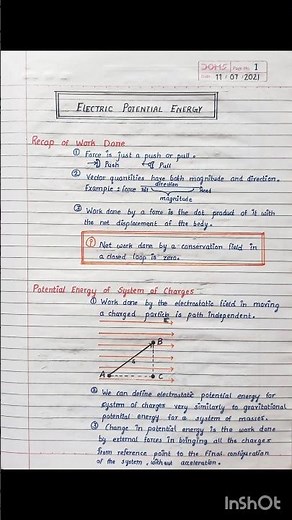 DOMS Page No. 1
Date 11 / 07 / 2021
ELECTRIC POTENTIAL ENERGY
Recap of Work Done
① Force is just a push or pull.
Push Pull
② Vector quantities have both magnitude and direction.
direction
Example :
magnitude
③ Work done by a force is the dot product of it with
the net displacement of the body.
Net work done by a conservation field in
a closed loop is zero.
Potential Energy of System of Charges
① Work done by the electrostatic field in moving
a charged particle is path independent.
E
B
A
C
② We can define electrostatic potential energy for
system of charges very similarly to gravitational
potential energy for a system of masses.
③ Change in potential energy is the work done
by external forces in bringing all the charges
from reference point to the final configuration
of the system, without acceleration.
InShOt